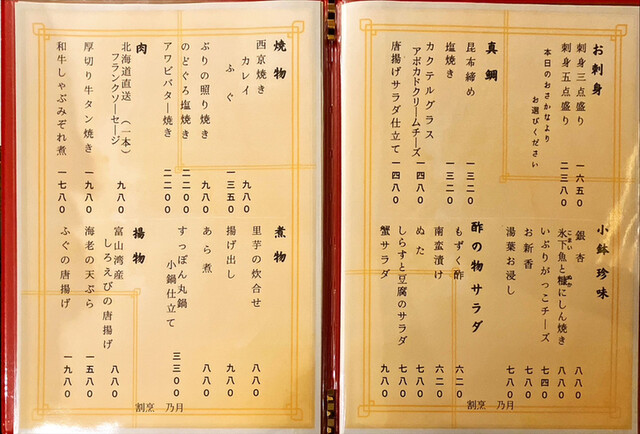 お刺身
刺身三点盛り 一六五〇
刺身五点盛り 二三八〇
本日のおさかなより
お選びください
真鯛
昆布締め 一三二〇
塩焼き 一三二〇
カクテルグラス
アボカドクリームチーズ 一四八〇
唐揚げサラダ仕立て 一四八〇
小鉢珍味
銀杏 八八〇
氷下魚と糠にしん焼き 八八〇
こまい ぬか
いぶりがっこチーズ 七四〇
お新香 七八〇
湯葉お浸し 七八〇
酢の物サラダ
もずく酢 六二〇
南蛮漬け 六二〇
ぬた 七八〇
しらすと豆腐のサラダ 七八〇
蟹サラダ 九八〇
割烹 乃月
焼物
西京焼き
カレイ 九八〇
ふぐ 一三五〇
ぶりの照り焼き 九八〇
のどぐろ塩焼き 二二〇〇
アワビバター焼き 二二〇〇
肉
北海道直送 (一本)
フランクソーセージ 九八〇
厚切り牛タン焼き 一九八〇
和牛しゃぶみぞれ煮 一七八〇
煮物
里芋の炊合せ 八八〇
揚げ出し 九八〇
あら煮 八八〇
すっぽん丸鍋
小鍋仕立て 三三〇〇
揚物
富山湾産
しろえびの唐揚げ 八八〇
海老の天ぷら 一五八〇
ふぐの唐揚げ 一九八〇
割烹 乃月